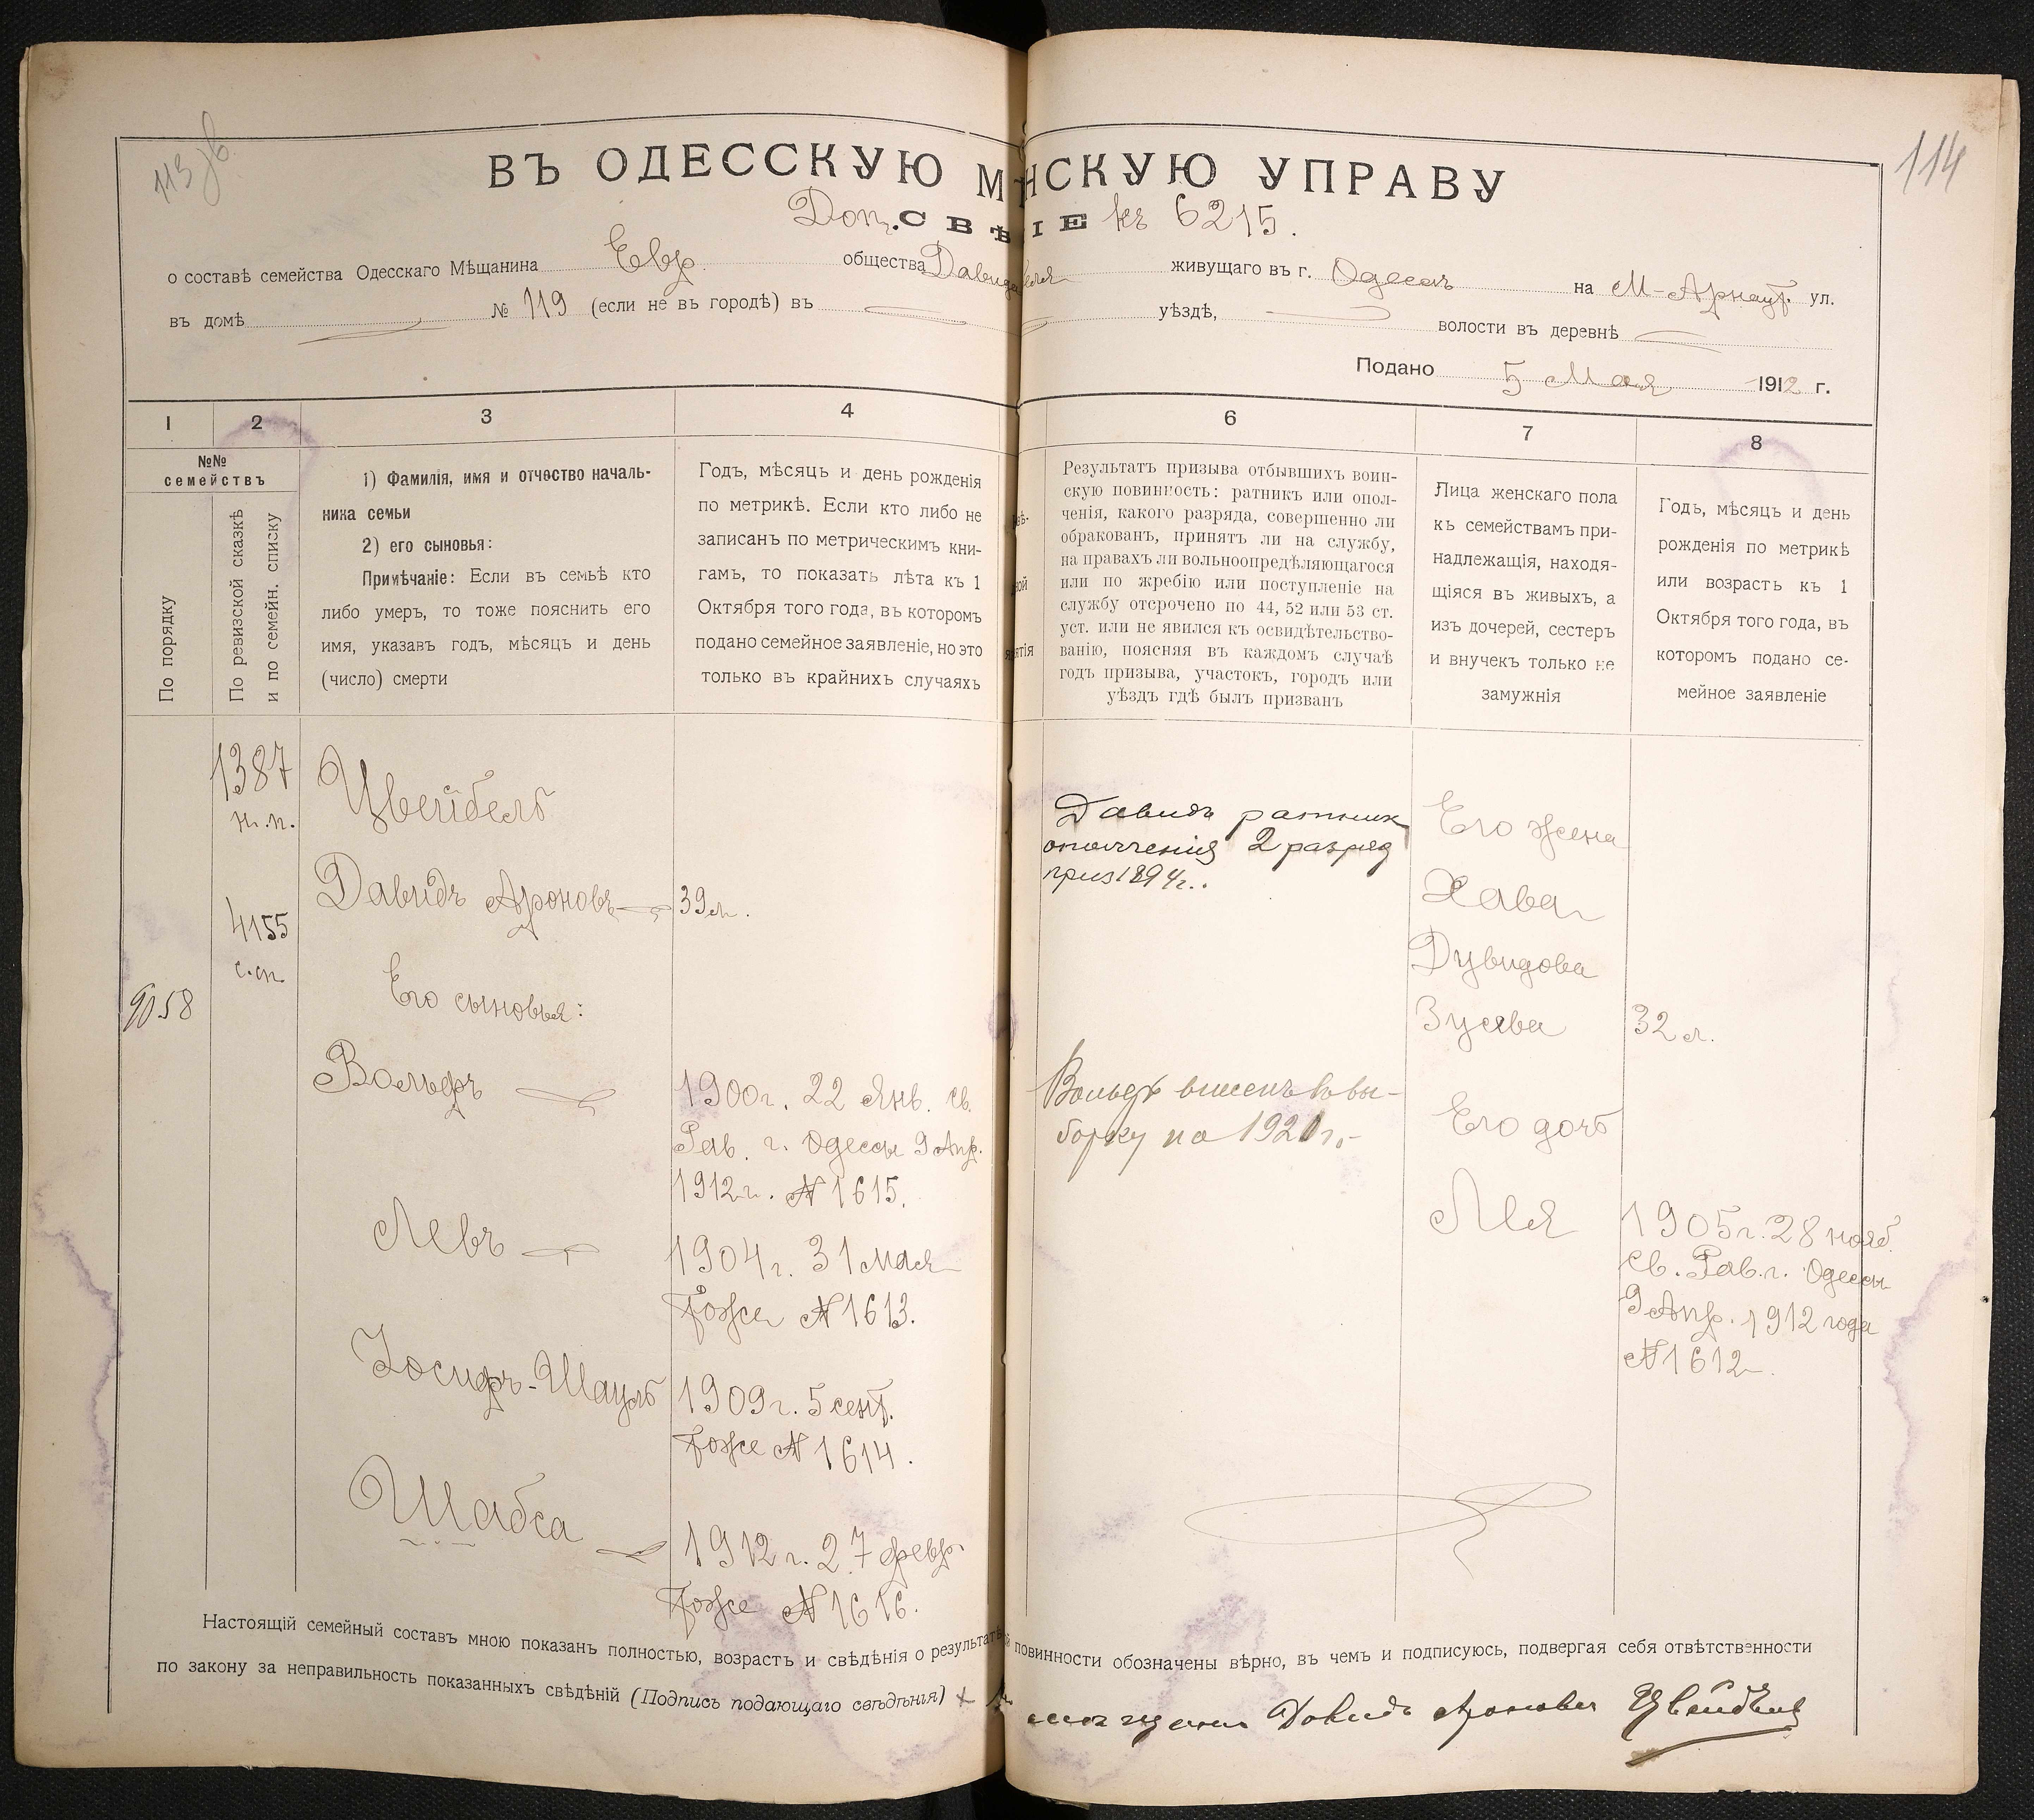 114
ВЪ ОДЕССКУЮ М НСКУЮ УПРАВУ
Доп. СВѢ IЕ къ 6215.
о составѣ семейства Одесскаго Мѣщанина Евр. общества живущаго въ г. Одессѣ на М-Арнаут. ул.
въ домѣ № 119 (если не въ городѣ) въ уѣздѣ, волости въ деревнѣ
Подано 5 Мая 1912 г.
1
2
3
4
6
7
8
№№
семействъ
По порядку
По ревизской сказкѣ
и по семейн. списку
1) Фамилія, имя и отчество началь-
ника семьи
2) его сыновья:
Примѣчаніе: Если въ семьѣ кто
либо умеръ, то тоже пояснить его
имя, указавъ годъ, мѣсяцъ и день
(число) смерти
Годъ, мѣсяцъ и день рожденія
по метрикѣ. Если кто либо не
записанъ по метрическимъ кни-
гамъ, то показать лѣта къ 1
Октября того года, въ которомъ
подано семейное заявленіе, но это
только въ крайнихъ случаяхъ
Результатъ призыва отбывшихъ воин-
скую повинность: ратникъ или опол-
ченія, какого разряда, совершенно ли
обракованъ, принятъ ли на службу,
на правахъ ли вольноопредѣляющагося
или по жребію или поступленіе на
службу отсрочено по 44, 52 или 53 ст.
уст. или не явился къ освидѣтельство-
ванію, поясняя въ каждомъ случаѣ
годъ призыва, участокъ, городъ или
уѣздъ гдѣ былъ призванъ
Лица женскаго пола
къ семействамъ при-
надлежащія, находя-
щіяся въ живыхъ, а
изъ дочерей, сестеръ
и внучекъ только не
замужнія
Годъ, мѣсяцъ и день
рожденія по метрикѣ
или возрастъ къ 1
Октября того года, въ
которомъ подано се-
мейное заявленіе
9058
1387
н.п.
4155
с.сп.
Цвейбель
Давидъ Ароновъ 39 л.
Его сыновья:
Вольфъ 1900 г. 22 Янв. св.
Рав. г. Одессы 9 Апр.
1912 г. № 1615.
Левъ 1904 г. 31 мая
тоже № 1613.
Іосифъ-Шауль 1909 г. 5 сент.
тоже № 1614.
Шабса 1912 г. 27 февр.
тоже № 1616.
Давидъ ратник
ополчения 2 разряд
приз 1894 г.
Вольфъ внесенъ въ вы-
борку на 1921 г.
Его жена
Хава
Дувидова
32 л.
Его дочь
Лея
1905 г. 28 нояб.
св. Рав. г. Одессы
9 Апр. 1912 года
№ 1612
Настоящій семейный составъ мною показанъ полностью, возрастъ и свѣдѣнія о результатѣ повинности обозначены вѣрно, въ чемъ и подписуюсь, подвергая себя отвѣтственности
по закону за неправильность показанныхъ свѣдѣній (Подпись подающаго свѣдѣнія) Давидъ Ароновъ Цвейбель